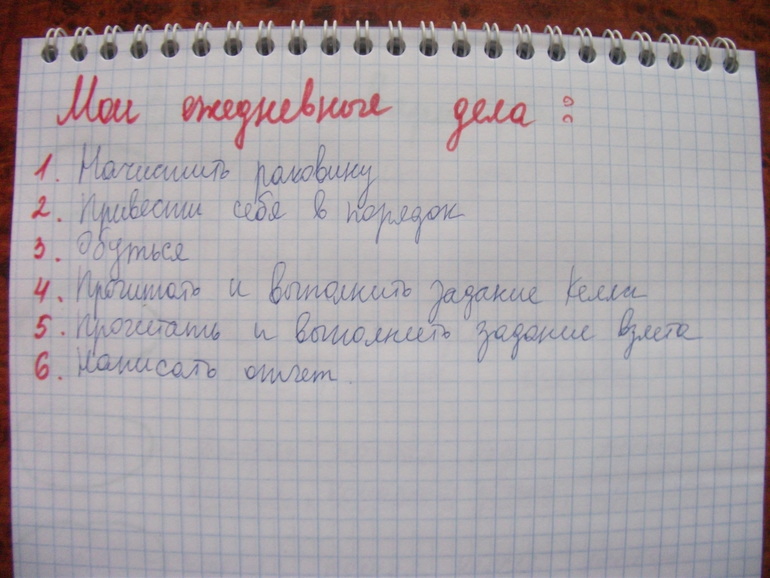 Мои ежедневные дела:
1. Начистить раковину
2. Привести себя в порядок
3. Обуться
4. Прочитать и выполнить задание Келли
5. Прочитать и выполнить задание взлёта
6. Написать отчет.